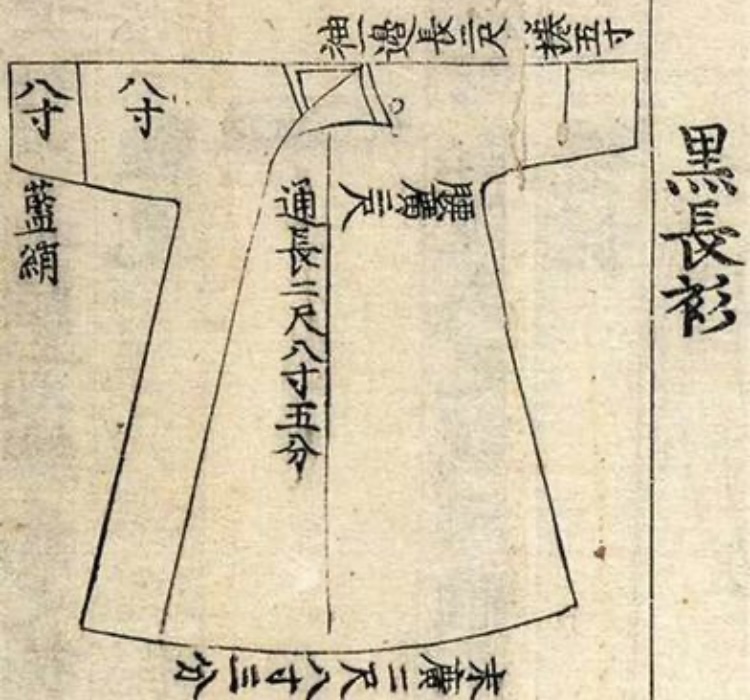 黒長衫
捲五寸
袖邊長二尺
八寸
八寸
藍絹
腰廣二尺
通長二尺八寸五分
末廣二尺八寸三分